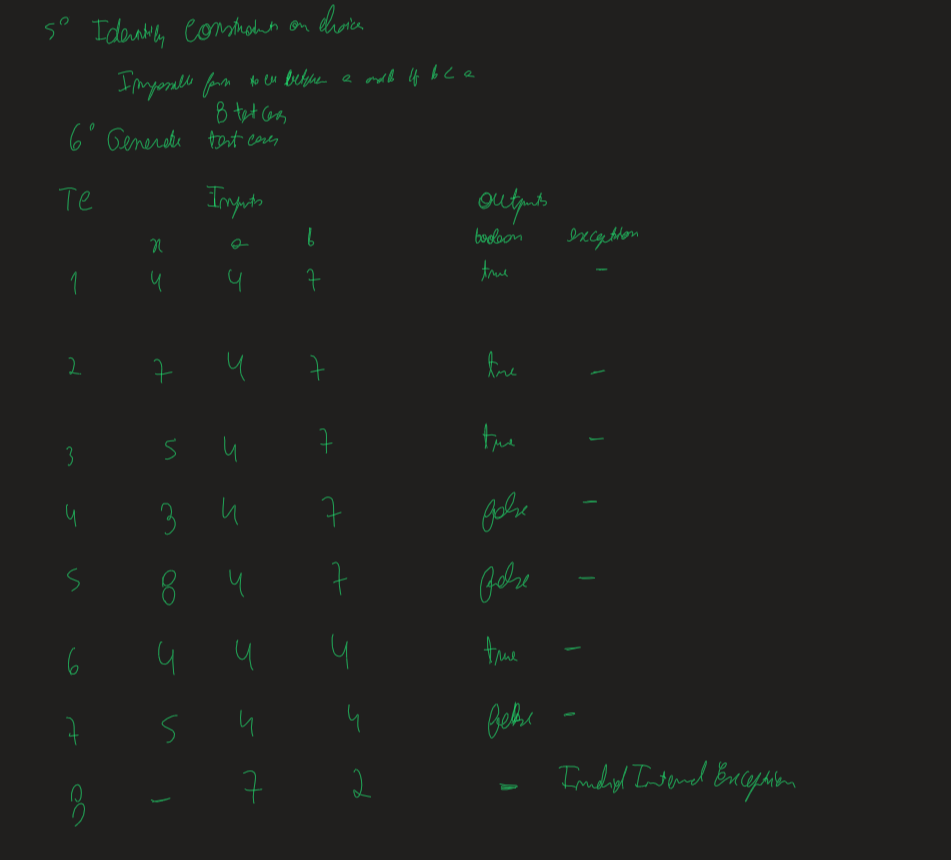 5º Identify constraints on choices
Impossible for x to be between a and b if b < a
8 test cases
6º Generate test cases
TC Inputs Outputs
x a b boolean exception
1 4 4 7 true -
2 7 4 7 true -
3 5 4 7 true -
4 3 4 7 false -
5 8 4 7 false -
6 4 4 4 true -
7 5 4 4 false -
8 - 7 2 - Invalid Interval Exception